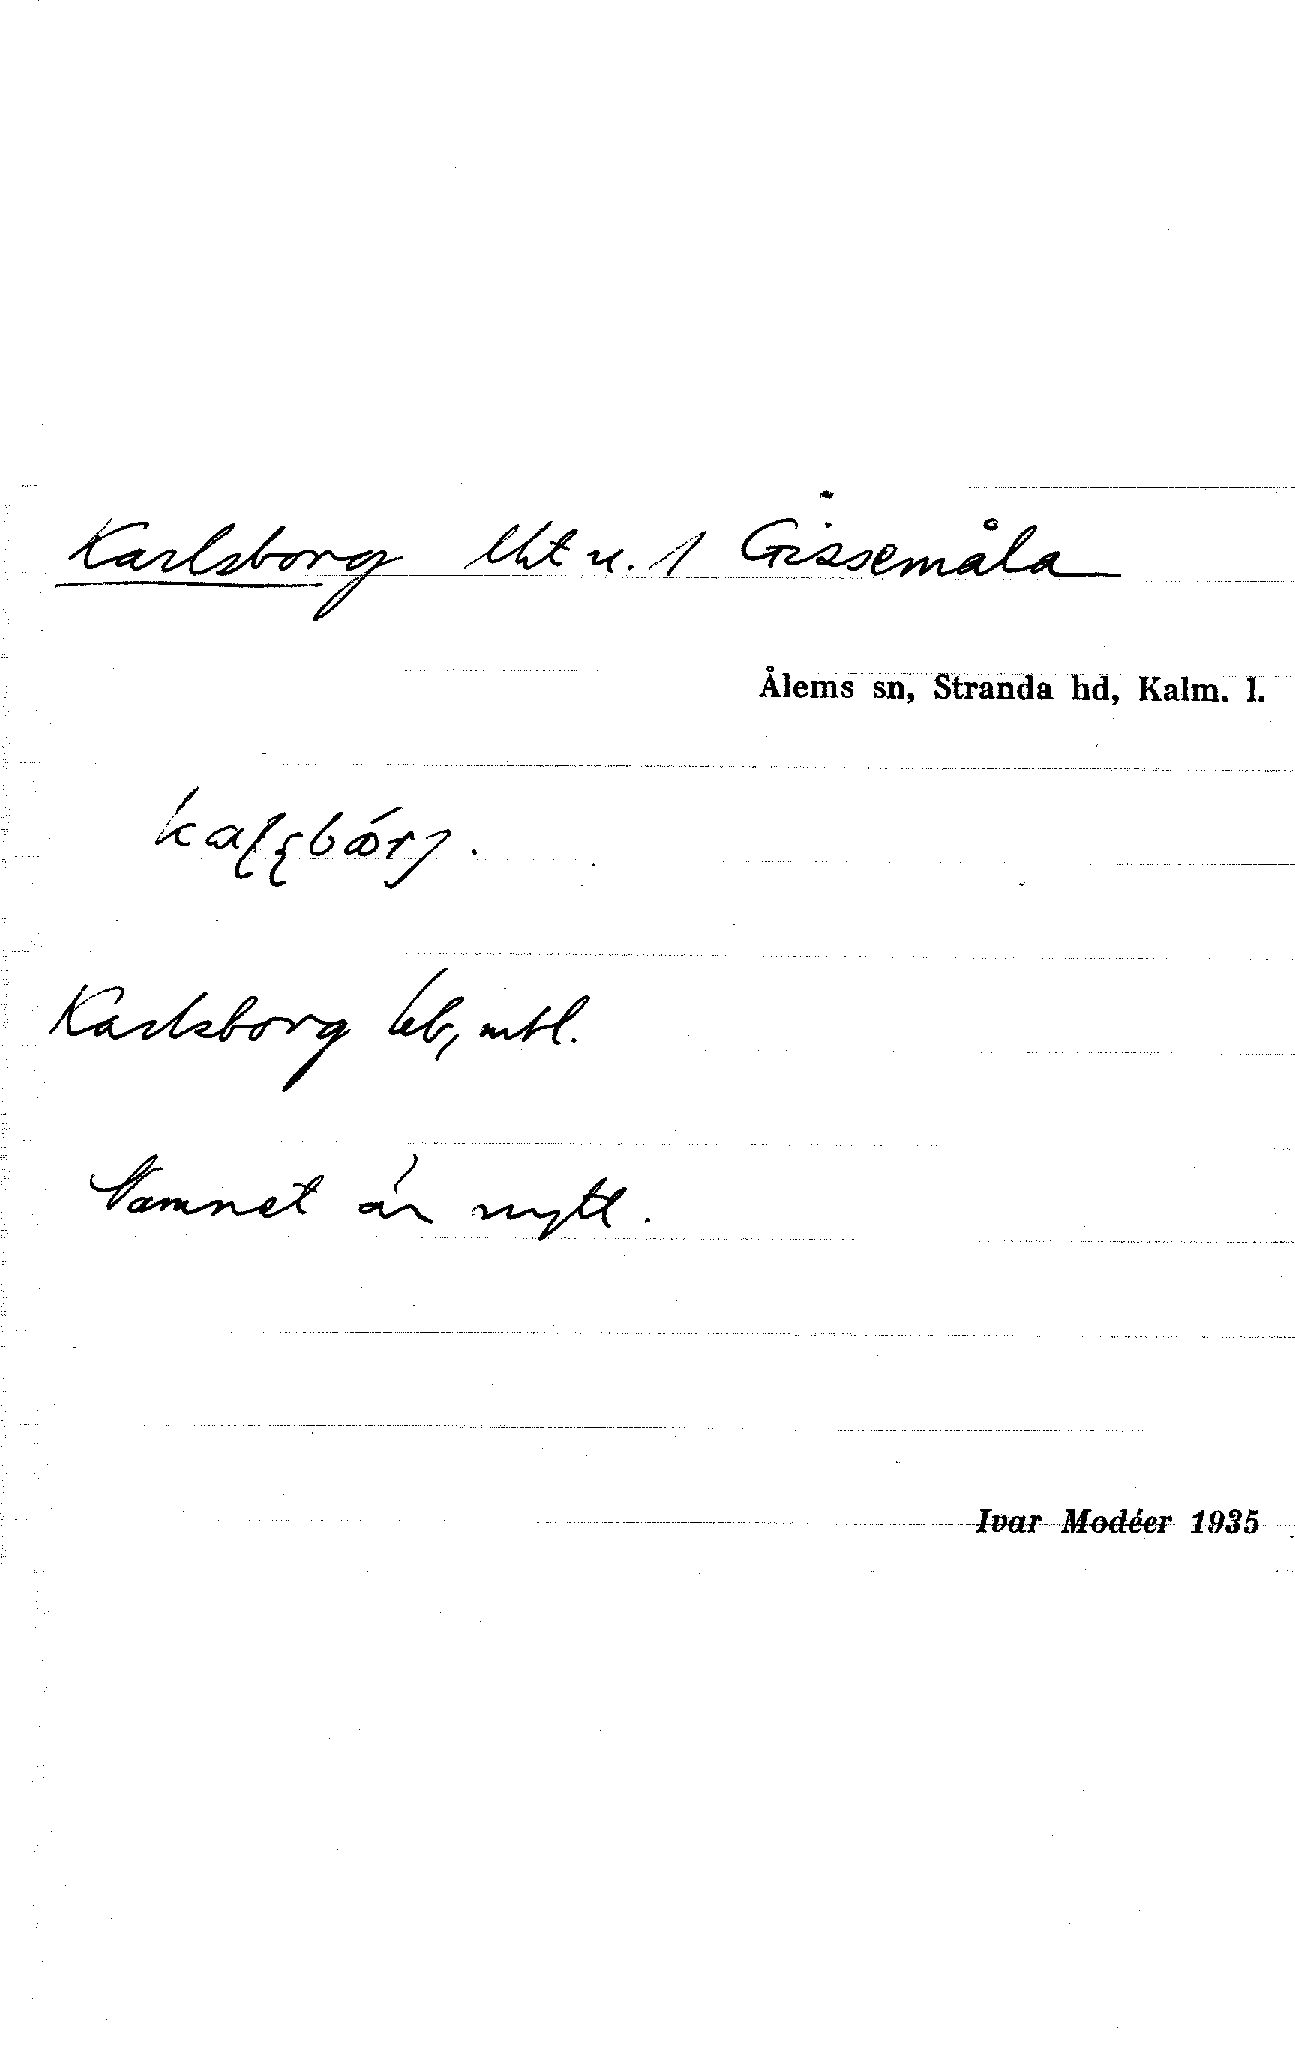 Karlsborg lht u. 1 Gissemåla
Ålems sn, Stranda hd, Kalm. l.
Karlsborg kb, mtl.
Namnet är nytt.
Ivar Modéer 1935